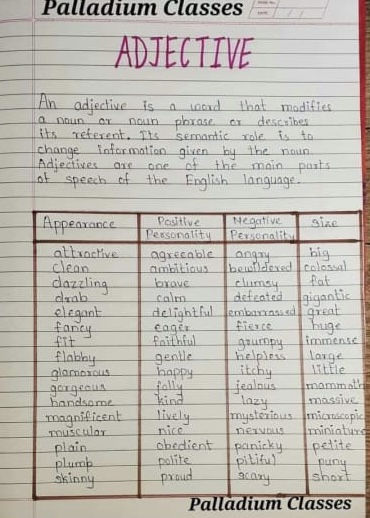 Palladium Classes
ADJECTIVE
An adjective is a word that modifies
a noun or noun phrase or describes
its referent. Its semantic role is to
change information given by the noun.
Adjectives are one of the main parts
of speech of the English language.
Appearance Positive Personality Negative Personality Size
attractive agreeable angry big
clean ambitious bewildered colossal
dazzling brave clumsy fat
drab calm defeated gigantic
elegant delightful embarrassed great
fancy eager fierce huge
fit faithful grumpy immense
flabby gentle helpless large
glamorous happy itchy little
gorgeous jolly jealous mammoth
handsome kind lazy massive
magnificent lively mysterious microscopic
muscular nice nervous miniature
plain obedient panicky petite
plump polite pitiful puny
skinny proud scary short
Palladium Classes